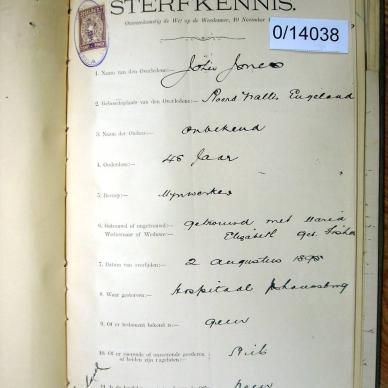 STERFKENNIS.
Overeenkomstig de Wet op de Weeskamer, 10 November
0/14038
1. Naam van den Overledene:— John Jones
2. Geboorteplaats van den Overledene:— Noord Wallis Engeland
3. Namen der Ouders:— onbekend
4. Ouderdom:— 46 Jaar
5. Beroep:— Mynwerker
6. Getrouwd of ongetrouwd, getrouwd met Maria
Weduwnaar of Weduwe:— Elizabeth geb.
7. Datum van overlijden:— 2 Augustus 1895
8. Waar gestorven:— Hospitaal Johannesburg
9. Of er testament bekend is:— geen
10. Of er roerende of onroerende goederen
of beiden zijn nagelaten:— Niets
geen